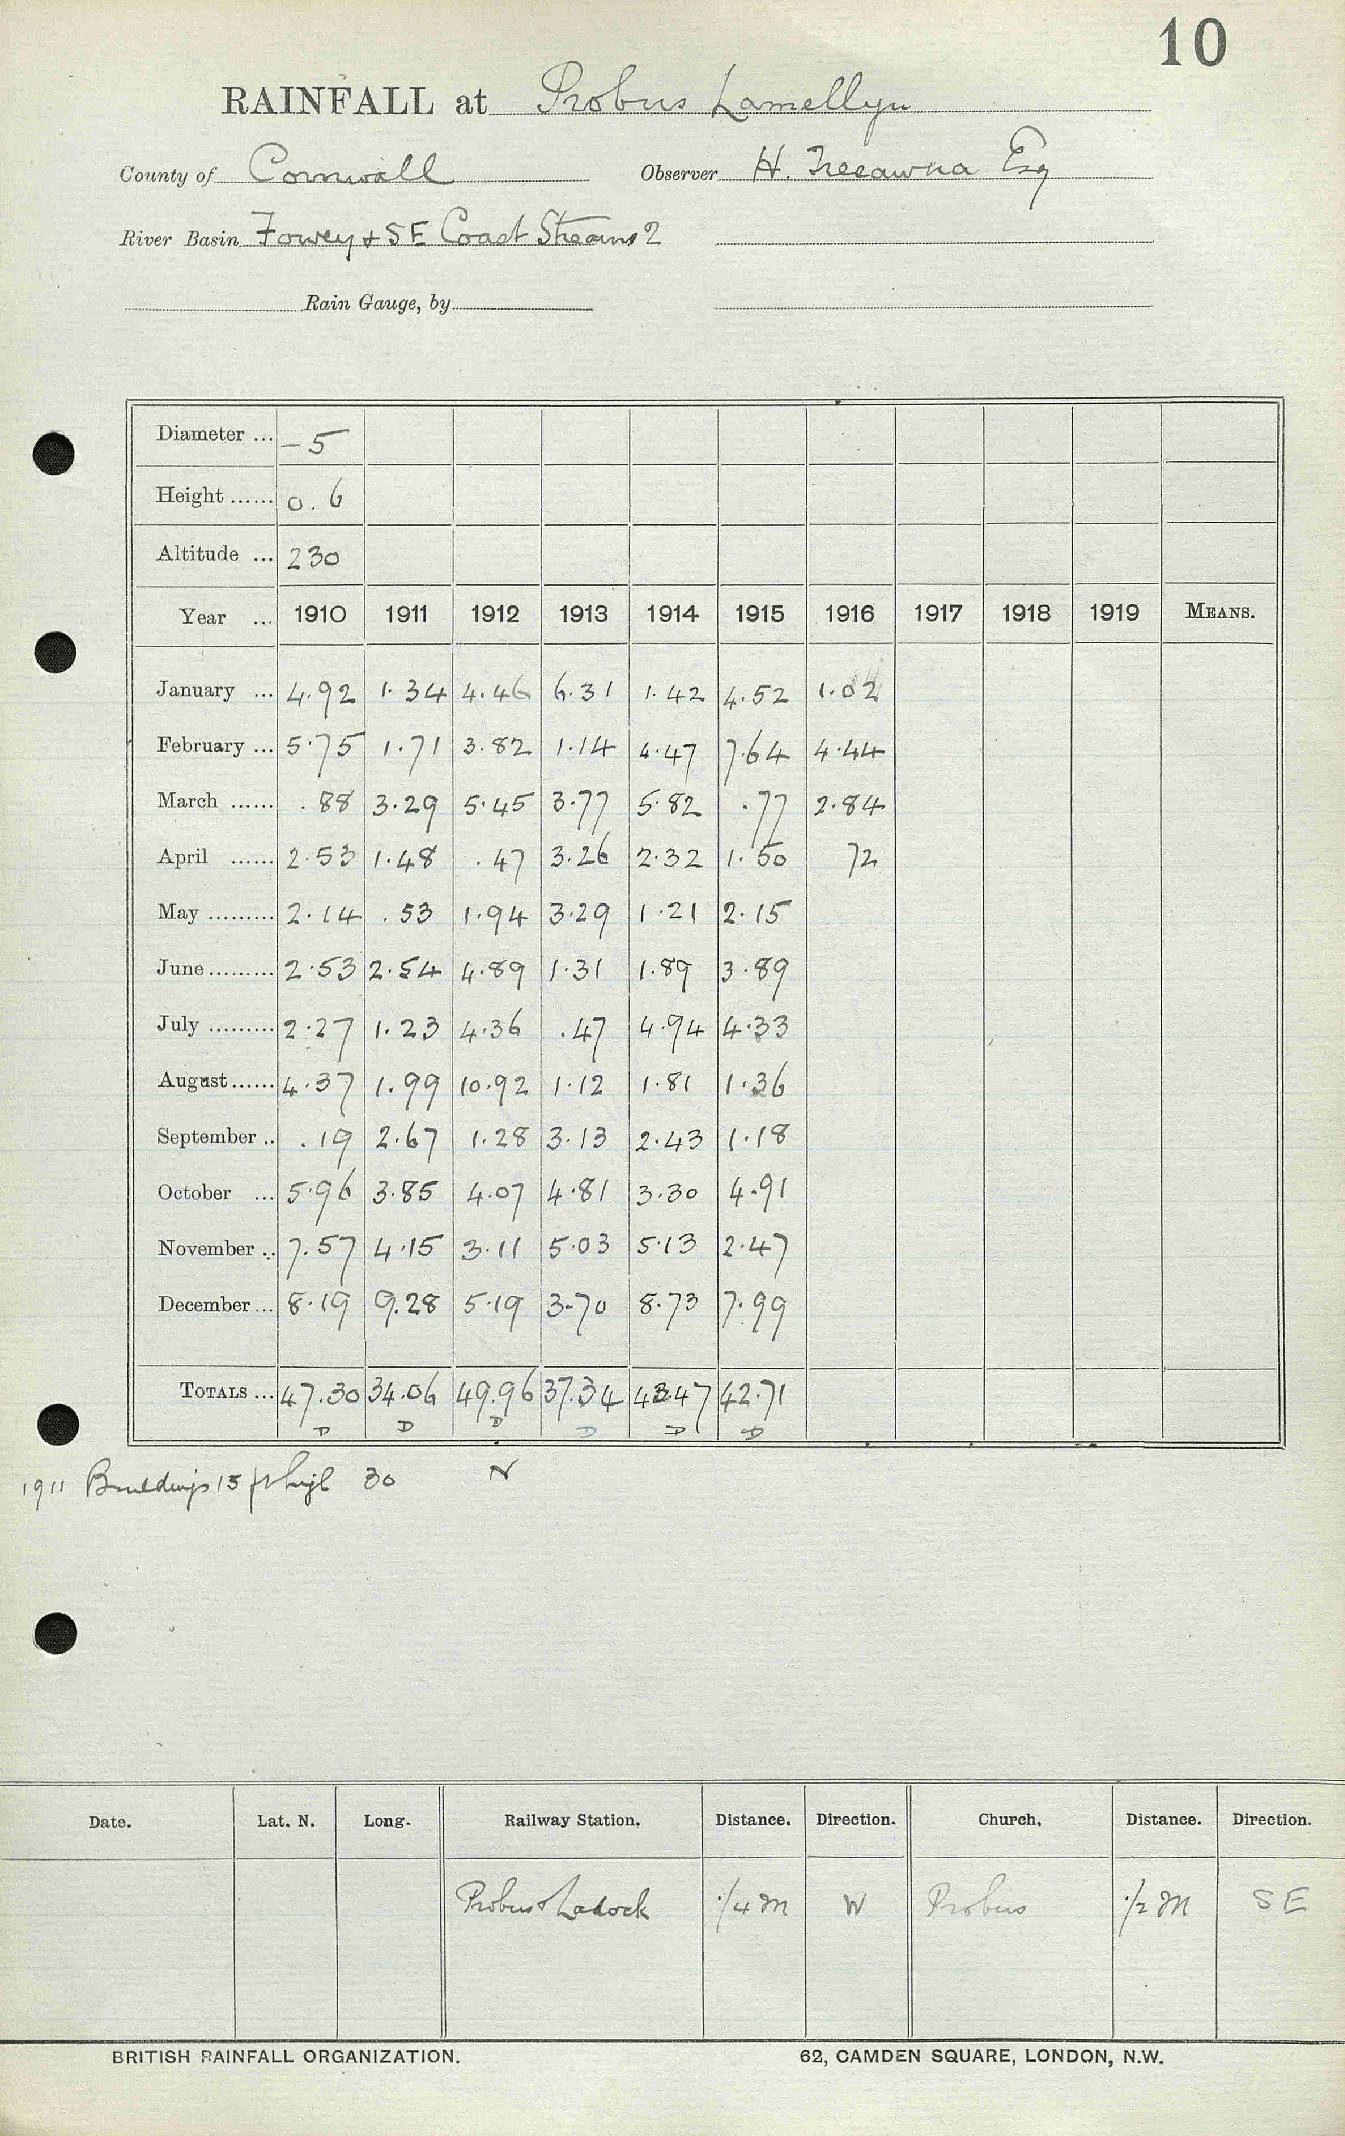 10
RAINFALL at Probus Lamellyn
County of Cornwall Observer H. Treeawna Esq
River Basin Fowey & SE Coast Streams 2
Rain Gauge, by
Diameter ... – 5
Height ...... 0.6
Altitude ... 230
Year ... 1910 1911 1912 1913 1914 1915 1916 1917 1918 1919 MEANS.
January ... 4.92 1.34 4.46 6.31 1.42 4.52 1.02
February ... 5.75 1.71 3.82 1.14 4.47 7.64 4.44
March ...... .88 3.29 5.45 3.77 5.82 .77 2.84
April ...... 2.53 1.48 .47 3.26 2.32 1.50 72
May ......... 2.14 .53 1.94 3.29 1.21 2.15
June ......... 2.53 2.54 4.89 1.31 1.89 3.89
July ......... 2.27 1.23 4.36 .47 4.94 4.33
August ...... 4.37 1.99 10.92 1.12 1.81 1.36
September .. .19 2.67 1.28 3.13 2.43 1.18
October ... 5.96 3.85 4.07 4.81 3.30 4.91
November .. 7.57 4.15 3.11 5.03 5.13 2.47
December ... 8.19 9.28 5.19 3.70 8.73 7.99
TOTALS ... 47.30 34.06 49.96 37.34 43.47 42.71
D D D D D D
1911 Buildings 15 ft high 30 N
Date. Lat. N. Long. Railway Station. Distance. Direction. Church. Distance. Direction.
Probus & Ladock 1/4 m W Probus 1/2 m SE
BRITISH RAINFALL ORGANIZATION. 62, CAMDEN SQUARE, LONDON, N.W.